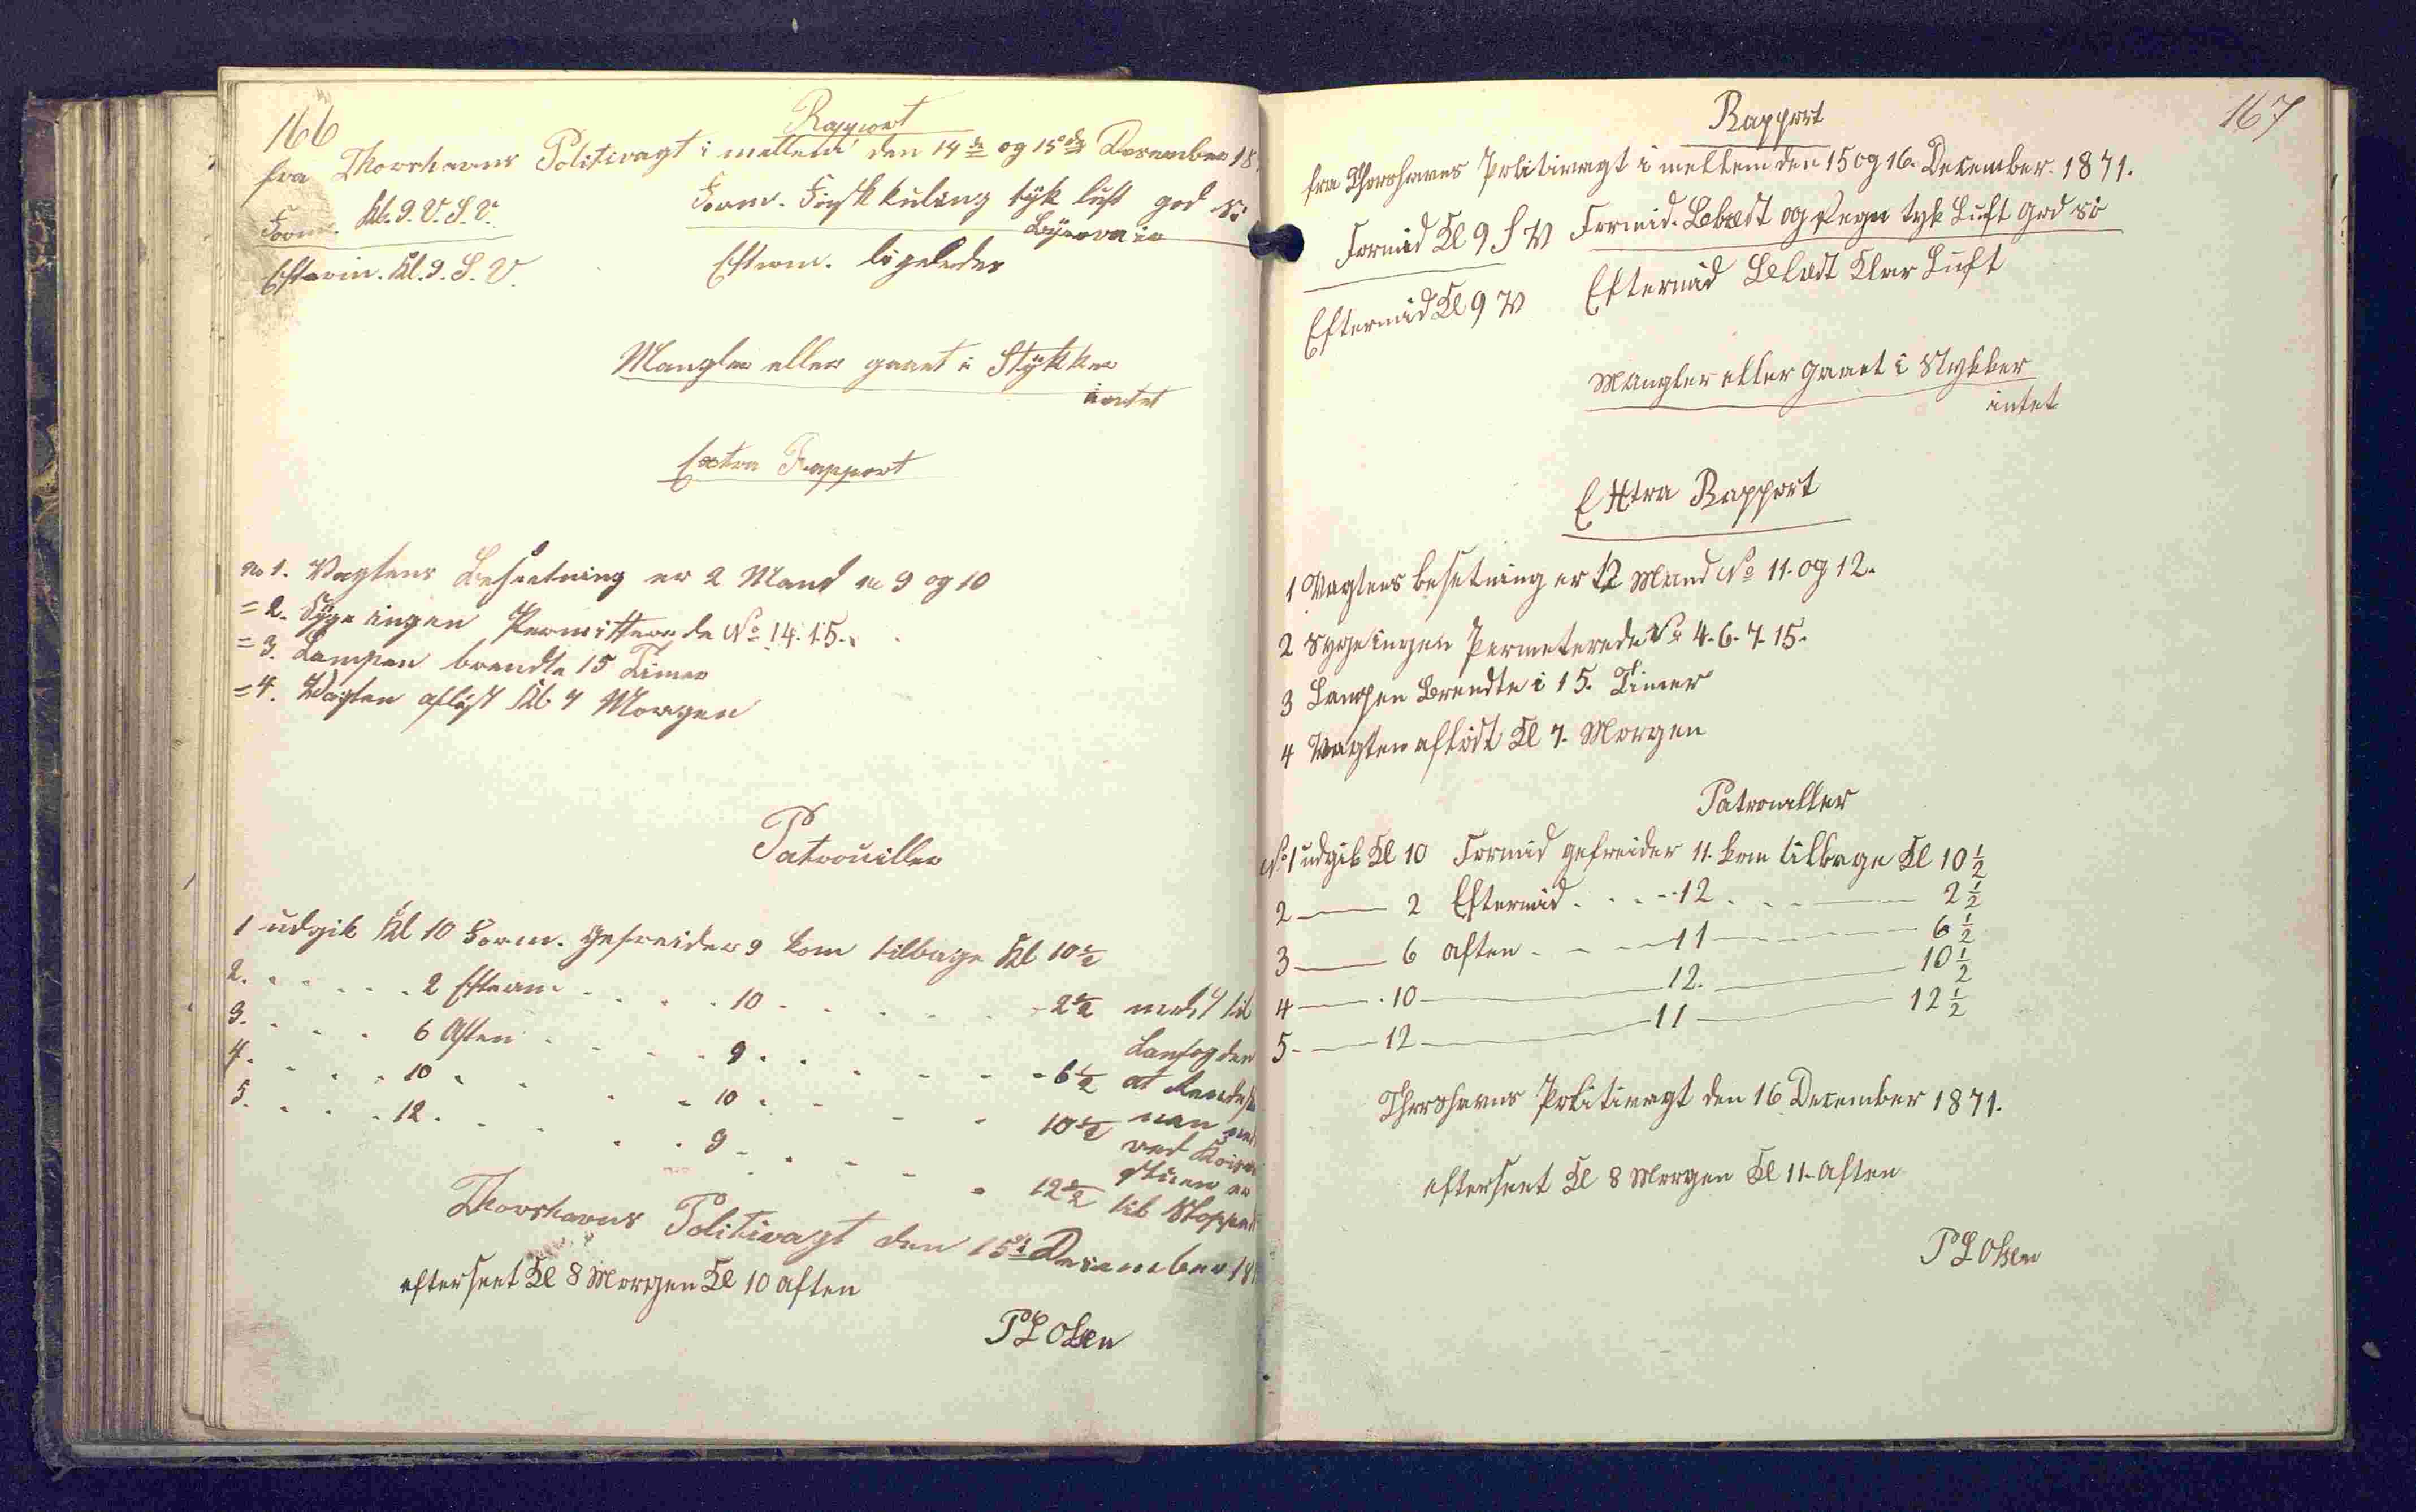 166
Rapport
fra Thorshavns Politivagt i mellem den 14de og 15de December 18
Form. Kl. 9. V. S. V. Form. Frisk kuling tyk luft god Sö
Byerva in
Efterm. Kl. 9. S. V. Efterm. ligeledes
Mangler eller gaaet i Stykker
intet
Extra Rapport
No 1. Vagtens Besætning er 2 Mand No 9 og 10
= 2. Syge ingen Permitterede No 14. 15.
= 3. Lampen brendte 15 Timer
= 4. Vagten aflöst Kl 7 Morgen
Patrouiller
1 udgik Kl 10 Form. gefreider 9 kom tilbage Kl 10 1/2
2. 2 Efterm 10 2 1/2
3. 6 Aften 9 6 1/2
4. 10 10 10 1/2
5. 12 9 12 1/2
Thorshavns Politivagt den 15de December 18
efterseet Kl 8 Morgen Kl 10 aften
P L Olsen
167
Rapport
fra Thorshavns Politivagt i mellem den 15 og 16. December. 1871.
Formid Kl 9 S V Formid. Blæst og Regn tyk Luft god Sö
Eftermid Kl 9 V Eftermid Blæst Klar Luft
Mangler eller gaaet i Stykker
intet
Extra Rapport
1 Vagtens besetning er 2 Mand No 11. og 12.
2 Syge ingen Permeterede No 4. 6. 7. 15.
3 Lampen Brendte i 15. Timer
4 Vagten aflödt Kl 7. Morgen
Patrouiller
No 1 udgik Kl 10 Formid gefreider 11. kom tilbage Kl 10 1/2
2 2 Eftermid 12 2 1/2
3 6 aften 11 6 1/2
4 10 12. 10 1/2
5 12 11 12 1/2
Thorshavns Politivagt den 16 December 1871.
efterseet Kl 8 Morgen Kl 11. Aften
P L Olsen